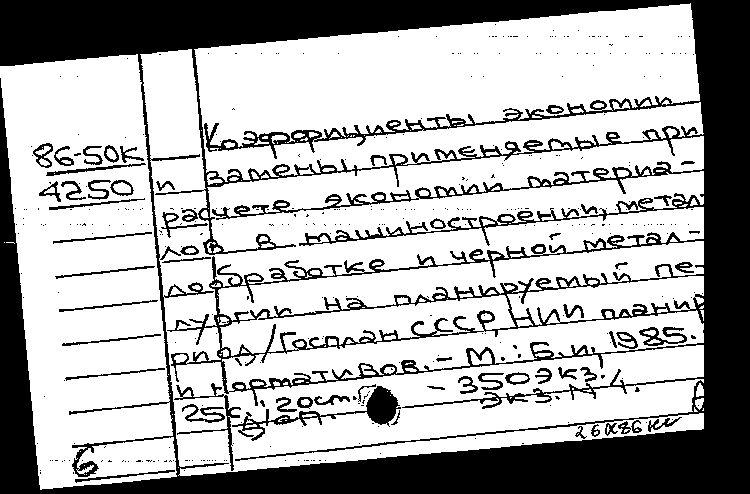 Коэффициенты экономии
86-50к
4250
и замены, применяемые при
расчете экономии материа-
лов в машиностроении, метал
лообработке и черной метал-
лургии на планируемый пе-
риод/Госплан СССР, НИИ планир
и нормативов. - М.: Б.и, 1985.
25с., 20см. - 350экз.
Экз. N 1.
6